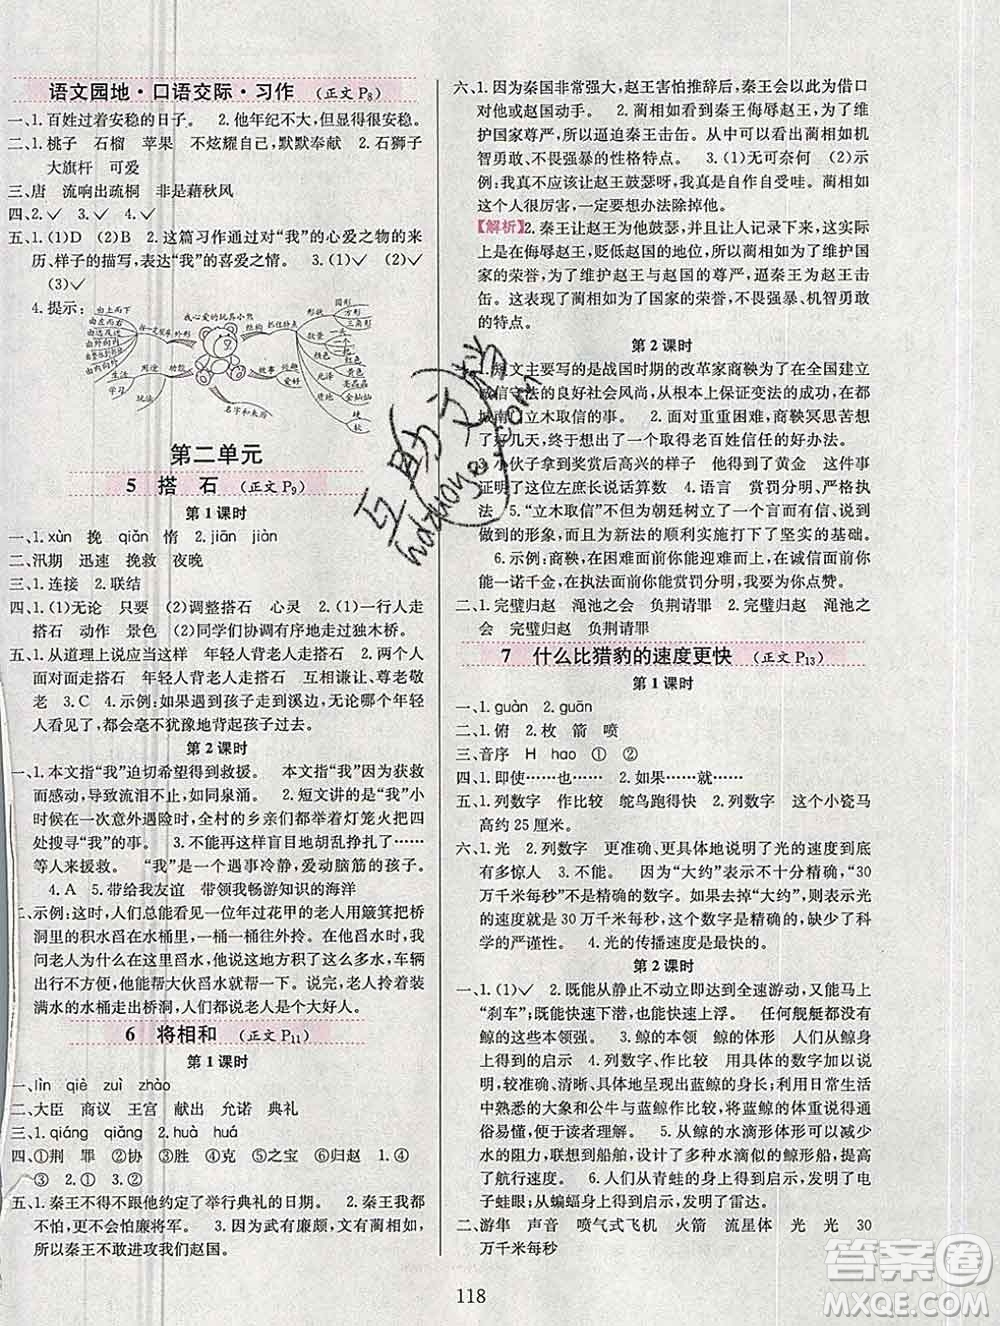 语文园地·口语交际·习作 (正文 P8)
一、1.百姓过着安稳的日子。 2.他年纪不大,但办事很安稳。
二、1.桃子 石榴 苹果 不炫耀自己,默默奉献 2.石狮子
大旗杆 可爱
三、唐 流响出疏桐 非是藉秋风
四、2.✓ 3.✓ 4.✓
五、1.(1)D (2)B 2.这篇习作通过对“我”的心爱之物的来
历、样子的描写,表达“我”的喜爱之情。 3.(1)✓ (2)✓
(3)✓
4.提示:
我心爱的玩具小熊
由上而下
由左而右
由远及近
由外向内
按一定顺序 外形
生活
学习
用途 功能
玩法
结构 抓住特点
形状
圆形
方形
三角形
软萌
颜色
红色
黄色
光泽
亮晶晶
金灿灿
质地
故事 爱好
名字和来历
第二单元
5 搭 石 (正文 P9)
第 1 课时
一、1.xùn 挽 qiǎn 惰 2.jiān jiàn
二、汛期 迅速 挽救 夜晚
三、1.连接 2.联结
四、1.(1)无论 只要 (2)调整搭石 心灵 2.(1)一行人走
搭石 动作 景色 (2)同学们协调有序地走过独木桥。
五、1.从道理上说应当这样 年轻人背老人走搭石 2.两个人
面对面走搭石 年轻人背老人走搭石 互相谦让、尊老敬
老 3.C 4.示例:如果遇到孩子走到小溪边,无论哪个年轻
人看见了,都会毫不犹豫地背起孩子过去。
第 2 课时
一、1.本文指“我”迫切希望得到救援。 本文指“我”因为获救
而感动,导致流泪不止,如同泉涌。 2.短文讲的是“我”小时
候在一次意外遇险时,急中生智,全村人都打着灯笼火把四
处搜寻“我”的事。 3.不能再这样盲目地胡乱挣扎了……
等人来援救。 “我”是一个遇事冷静,爱动脑筋的孩子。
4.A 5.带给我友谊 带领我畅游知识的海洋
二、示例:这时,人们总能看见一位年过花甲的老人用簸箕把桥
洞里的积水舀在水桶里,一桶一桶地向外拎。他在舀水呢,我
问老人为什么这样做,老人说,桥洞里积了这么多水,车辆
行人怎么过呢,我就帮大伙舀水吧。常常看见老人拎着装
满水的水桶走出桥洞,人们都说老人是个大好人。
6 将相和 (正文 P11)
第 1 课时
一、lìn qiè zuì zhào
二、大臣 商议 王宫 献出 允诺 典礼
三、1.qiáng qiǎng 2.huà huá
四、①荆 罪 ②协 ③胜 ④克 ⑤之宝 ⑥归赵 1.④
⑥ 2.①③ 3.②
五、1.秦王不得不跟他约定了举行典礼的日期。 2.秦王我都
不怕,更不会怕廉将军。 3.因为武有廉颇,文有蔺相如,
所以秦王不敢进攻我们赵国。
六、1.因为秦国非常强大,赵王害怕推辞后,秦王会以此为借口
对他或赵国动手。 2.蔺相如看到秦王侮辱赵王,为了维
护国家尊严,所以逼迫秦王击缶。 从中可以看出蔺相如机
智勇敢、不畏强暴的性格特点。 3.(1)无可奈何 (2)示
例:我真不应该让赵王鼓瑟呀,我真是自作自受哇。蔺相如
这个人很厉害,一定要想办法除掉他。
【解析】2.秦王让赵王为他鼓瑟,并且让人记录下来,这实际
上是在侮辱赵王,贬低赵国的地位,所以蔺相如为了维护国
家的荣誉,为了维护赵王与赵国的尊严,逼秦王为赵王击
缶。这表现了蔺相如为了国家的荣誉,不畏强暴、机智勇敢
的特点。
第 2 课时
一、1.短文主要写的是战国时期的改革家商鞅为了在全国建立
诚信守法的良好社会风尚,从根本上保证变法的成功,在都
城南门立木取信的事。 2.面对重重困难,商鞅冥思苦想
了好几天,终于想出了一个取得老百姓信任的好办法。
3.小伙子拿到奖赏后高兴的样子 他得了黄金 这件事
证明了新任左庶长说话算数 4.语言 赏罚分明、严格执
法 5.“立木取信”不仅为朝廷树立了一言九鼎、说话算数
的形象,而且为新法的顺利实施打下了坚实的基础。
6.示例:商鞅,在困难面前你能迎难而上,在诚信面前你能
一诺千金,在执法面前你能赏罚分明,我为你点赞。
二、1.完璧归赵 渑池之会 负荆请罪 2.完璧归赵 渑池之
会 完璧归赵 负荆请罪
7 什么比猎豹的速度更快 (正文 P13)
第 1 课时
一、1.guàn 2.guān
二、1.俯 2.枚 箭 喷
三、音序 H hao ① ②
四、1.即使……也…… 2.如果……就……
五、1.列数字 作比较 鸵鸟跑得快 2.列数字 这个小瓷马
高约 25 厘米。
六、1.光 2.列数字 更准确、更具体地说明了光的速度到底
有多惊人 3.不可以。因为“大约”表示不十分精确,“30
万千米每秒”不是精确的数字。如果去掉“大约”,则表示光
的速度就是 30 万千米每秒,这个数字是精确的,缺少了科
学的严谨性。 4.光的传播速度是最快的。
第 2 课时
一、1.(1)✓ 2.既能从静止不动立即达到全速游动,又能马上
“刹车”;既能快速下潜,也能快速上浮。 任何舰艇都没有
鲸的这些本领强。 3.鲸的本领 鲸的体形 人们从鲸的
身上得到的启示 4.列数字、作比较 用具体的数字,能
较准确、清晰、具体地呈现出了蓝鲸的身长;通过与人们比
较熟悉的大象和公牛与蓝鲸进行比较,将蓝鲸的体重写得通
俗易懂,便于读者理解。 5.蓝鲸的水滴形体形可以减少水
的阻力,联想到船舶,设计了多种近似水滴的鲸形船,提高
了航行速度。 6.人们从青蛙的身上得到启示,发明了电
子蛙眼;从蝙蝠身上得到启示,发明了雷达。
二、游隼 声音 喷气式飞机 火箭 流星体 光 光 30
万千米每秒
118
互助文档
hdzuoye.com
答案圈
MXQE.COM